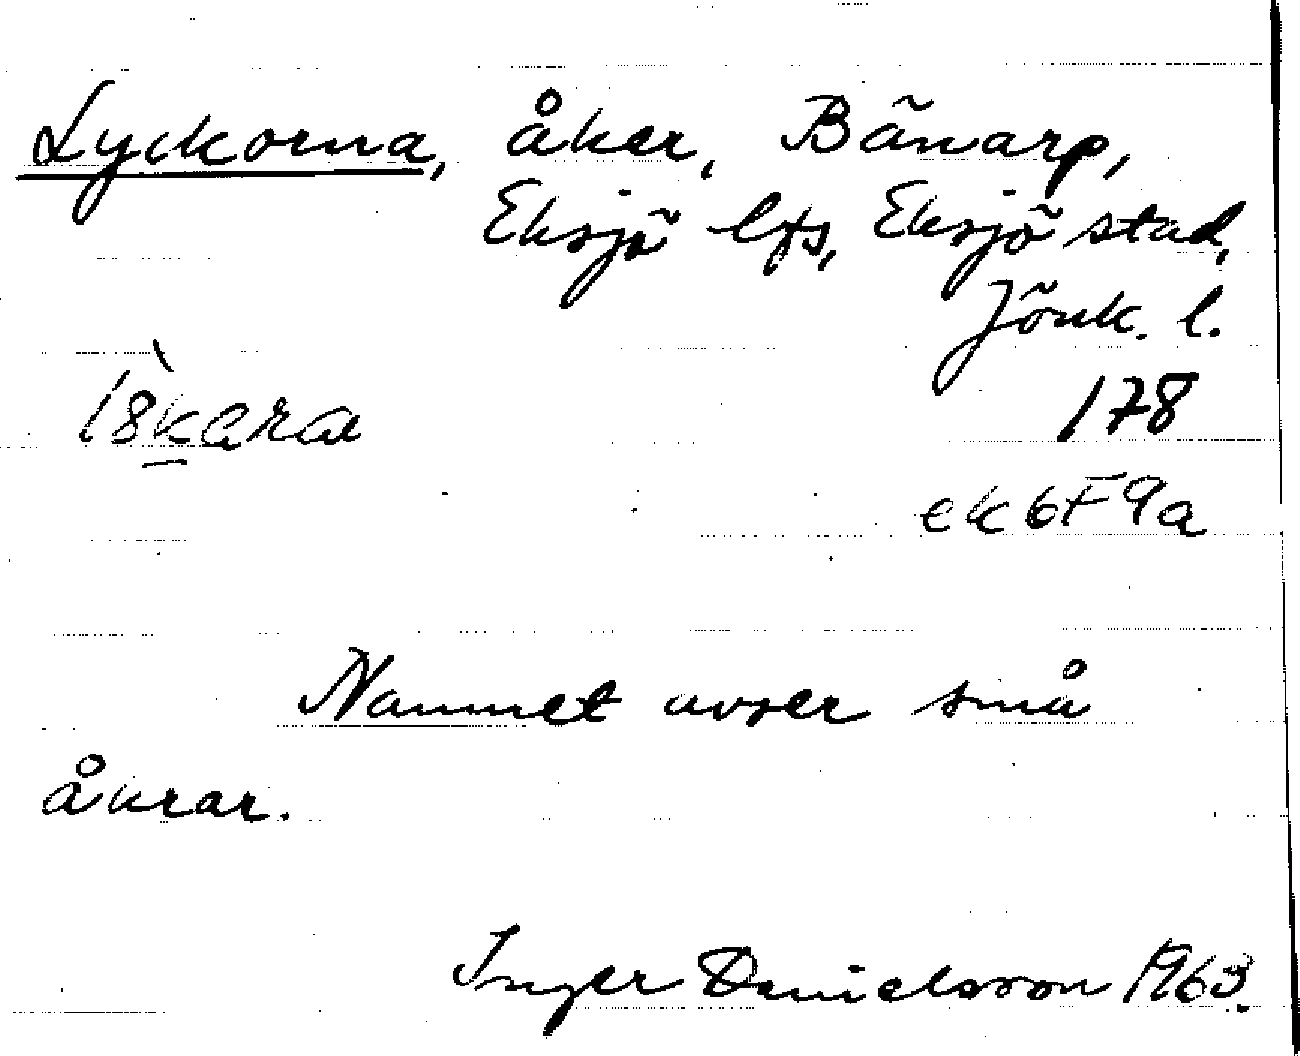 Lyckorna, åker, Bänarp,
Eksjö lfs, Eksjö stad,
Jönk. l.
178
ek6F9a
Namnet avser små
åkrar.
Inger Danielsson 1963.